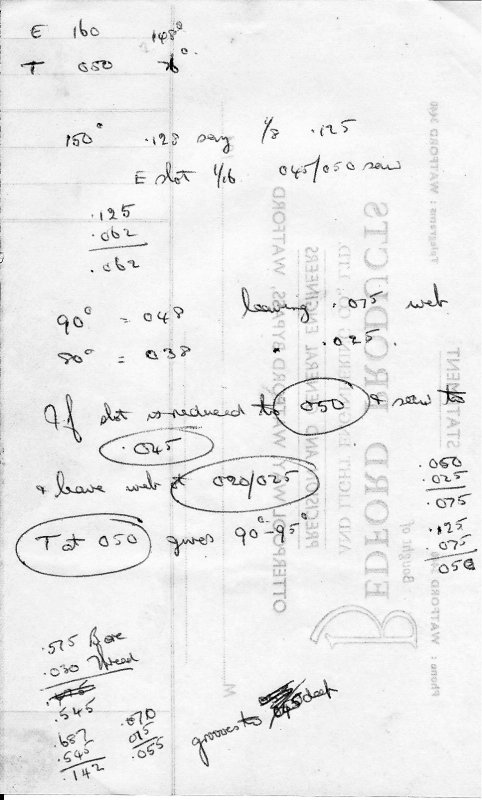 E 160 148°
T 050 76°
150° .128 say 1/8 .125
E slot 1/16 045/050 saw
.125
.062
.062
90° = 048 leaving .075 web
80° = 038 " .025.
If slot is reduced to 050 & saw to
.045
& leave web at 020/025
T at 050 gives 90°-95°
.050
.025
.075
.125
.075
.050
.575 Bore
.030 Thread
.545
.687
.545
.142
.070
.055
grooves to 045 deep
BEDFORD PRODUCTS
AND LIGHT ENGINEERING CO., LTD
PRECISION AND GENERAL ENGINEERS
OTTERSPOOL WAY, WATFORD BYPASS, WATFORD
STATEMENT
Bought of
Phone: WATFORD
Telegrams: WATFORD
M